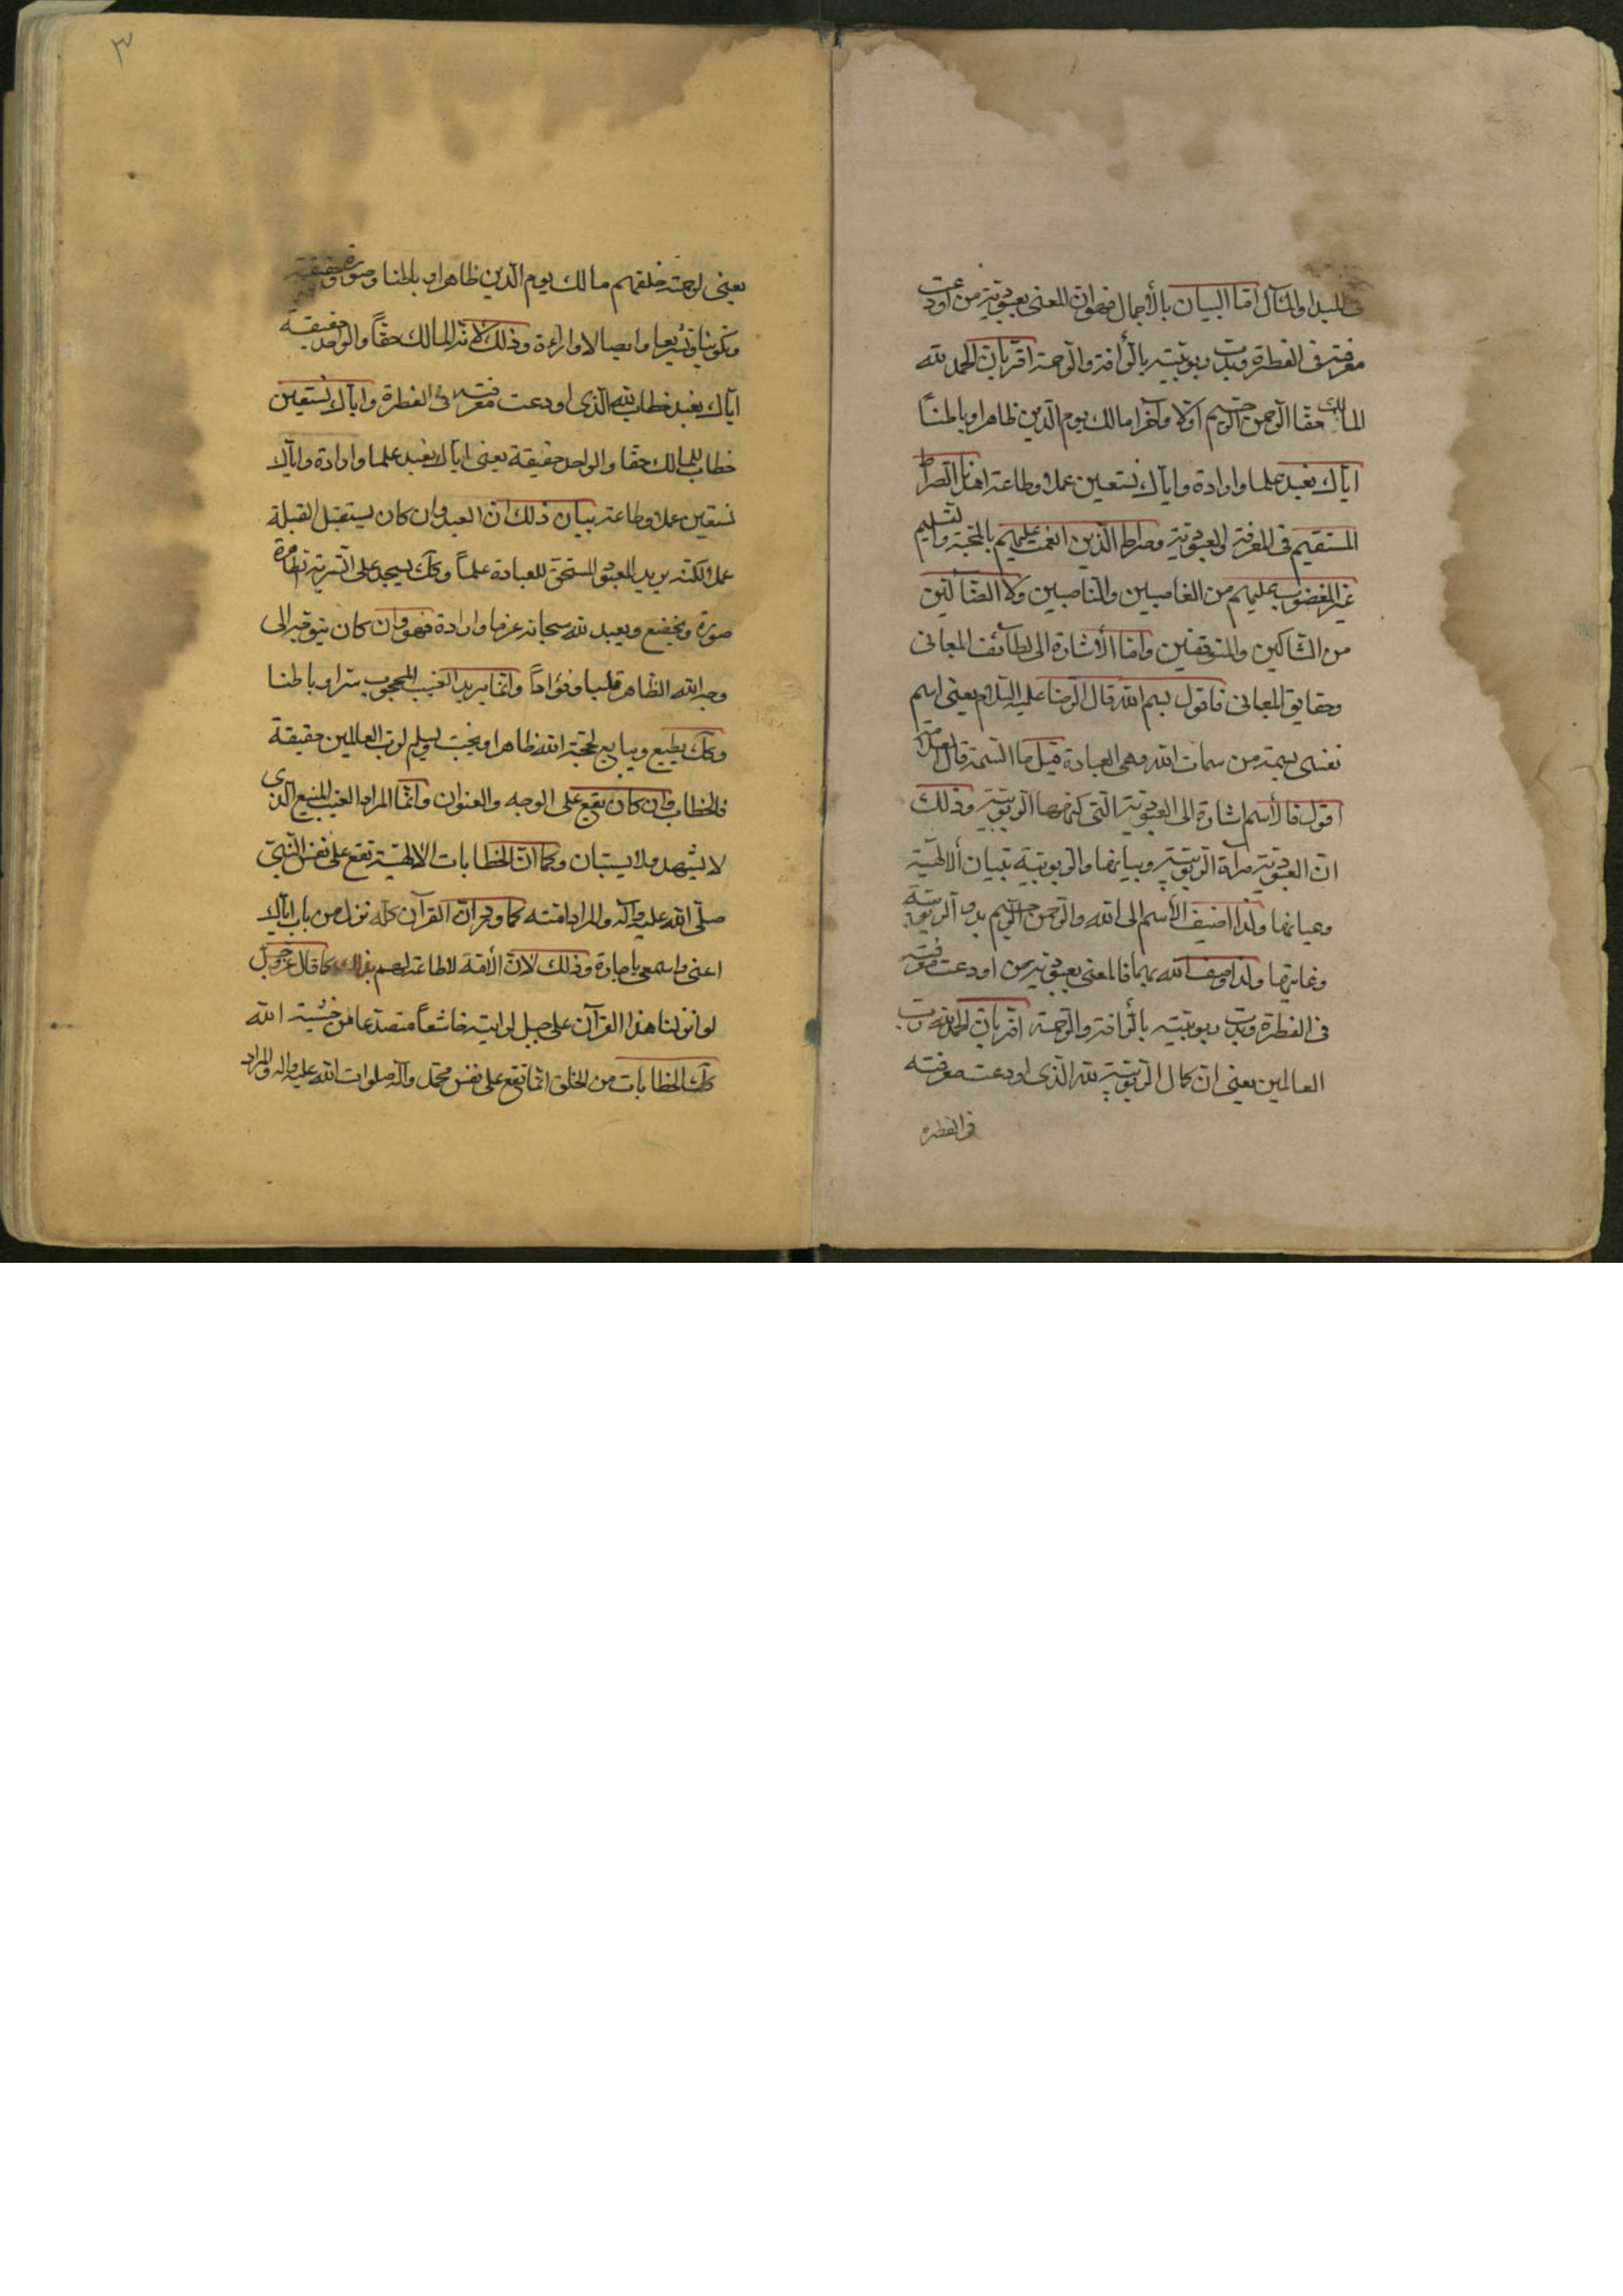 المبدا والمآل امّا البيان بالأجمال فهو ان المعنى بعبوديّة من اودعت
معرفته فى الفطرة وبدت ربوبيّته بالرأفة والرحمة اقرّ بان الحمد لله
المالك حقّا الرحمن الرحيم اوّلا وآخرا مالك يوم الدّين ظاهرا وباطنا
ايّاك نعبد علما وارادة وايّاك نستعين عملا وطاعة اهدنا الصّراط
المستقيم فى المعرفة والعبوديّة وصراط الّذين انعمت عليهم بالمحبّة والتسليم
غير المغضوب عليهم من الغاصبين والناصبين ولا الضّالّين
من الشّاكّين والمتوقفين وامّا الأشارة الى لطائف المعانى
وحقايق المعانى فاقول بسم الله قال الرضا عليه السّلام يعنى اسم
نفسى بسمة من سمات الله وهى العبادة قيل ما السّمة قال العلامة
اقول فالأسم اشارة الى العبوديّة الّتى كنهها الربوبيّة وذلك
انّ العبوديّة مرآة الربوبيّة وبيانها والربوبيّة تبيان الالهيّة
وعيانها ولذا اضيف الأسم الى الله والرحمن الرحيم بدو الربوبيّة
وغايتها ولذا وصف الله بهما فالمعنى بعبوديّة من اودعت معرفته
فى الفطرة وبدت ربوبيّته بالرأفة والرّحمة اقرّ بان الحمد لله ربّ
العالمين يعنى انّ كمال الربوبيّة لله الّذى اودعت معرفته
فى الفطرة
٣
يعنى خلقهم مالك يوم الدّين ظاهرا وباطنا وصورة وحقيقة
وتكوينا وتشريعا وايصالا واراءة وذلك لانّه المالك حقّاً والواحد حقيقة
ايّاك نعبد خطاب لله الّذى اودعت معرفته فى الفطرة وايّاك نستعين
خطاب للمالك حقّا والواحد حقيقة يعنى ايّاك نعبد علما وارادة وايّاك
نستعين عملا وطاعة بيان ذلك انّ العبد وان كان يستقبل القبلة
عملا لكنّه يريد المعبود المستحق للعبادة علماً وكك يسجد على التربة
صورة ويخضع ويعبد لله سبحانه عزما وارادة فهو وان كان يتوجّه الى
وجه الله الظّاهر قلبا وفؤاداً وانّما يريد الغيب المحجوب سرا وباطنا
وكك يطيع ويبايع لحجة الله ظاهرا ويخبت ويسلم لربّ العالمين حقيقة
فالخطاب وان كان يقع على الوجه والعنوان وانّما المراد الغيب المنيع الّذى
لا يشهد ولا يستبان وكما انّ الخطابات الالهيّة تقع على نفس النّبىّ
صلّى الله عليه وآله والمراد امّته كما ورد انّ القرآن كلّه نزل من باب ايّاك
اعنى واسمعى يا جارة وذلك لانّ الأمّة لا طاقة لهم بذلك كما قال عزّ وجلّ
لو انزلنا هذا القرآن على جبل لرايته خاشعاً متصدّعا من خشية الله
كك الخطابات من الخلق انّما تقع على نفس محمّد وآله صلوات الله عليه واله والمراد